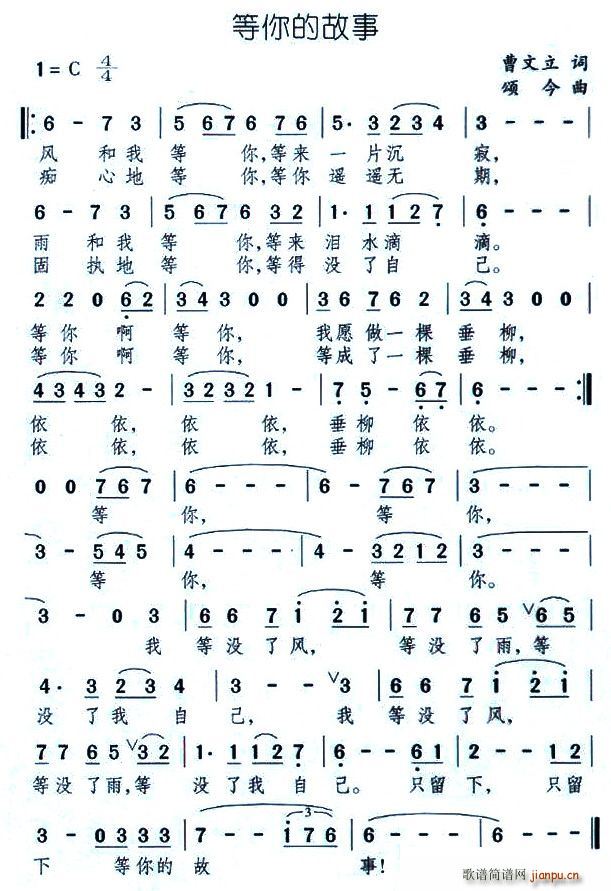 等你的故事
1=C 4/4
曹文立 词
颂今 曲
6 - 7 3 | 5 6 7 6 7 6 | 5· 3 2 3 4 | 3 - - - |
风 和我 等 你,等来 一片沉 寂,
痴 心地 等 你,等你 遥遥无 期,
6 - 7 3 | 5 6 7 6 3 2 | 1· 1 1 2 7 | 6 - - - |
雨 和我 等 你,等来 泪水滴 滴。
固 执地 等 你,等得 没了自 己。
2 2 0 6 2 | 3 4 3 0 0 | 3 6 7 6 2 | 3 4 3 0 0 |
等你 啊 等你, 我愿做一棵 垂柳,
等你 啊 等你, 等成了一棵 垂柳,
4 3 4 3 2 - | 3 2 3 2 1 - | 7 5 - 6 7 | 6 - - :|
依 依, 依 依, 垂柳 依 依。
依 依, 依 依, 垂柳 依 依。
0 0 7 6 7 | 6 - - - | 6 - 7 6 7 | 3 - - - |
等 你, 等 你,
3 - 5 4 5 | 4 - - - | 4 - 3 2 1 2 | 3 - - - |
等 你, 等 你。
3 - 0 3 | 6 6 7 i 2 i | 7 7 6 5 V 6 5 |
我 等没了风, 等没了雨,等
4· 3 2 3 | 3 - - V 3 | 6 6 7 i 2 i |
没了我 自 己, 我 等没了风,
7 7 6 5 V 3 2 | 1· 1 1 2 7 | 6 - - 1 2 | 2 - - 1 2 |
等没了雨,等 没了我 自 己。 只留 下, 只留
3 - 0 3 3 3 | 7 - - i 7 6 | 6 - - - | 6 - - - ‖
3
下 等你的 故 事!
歌谱简谱网 jianpu.cn